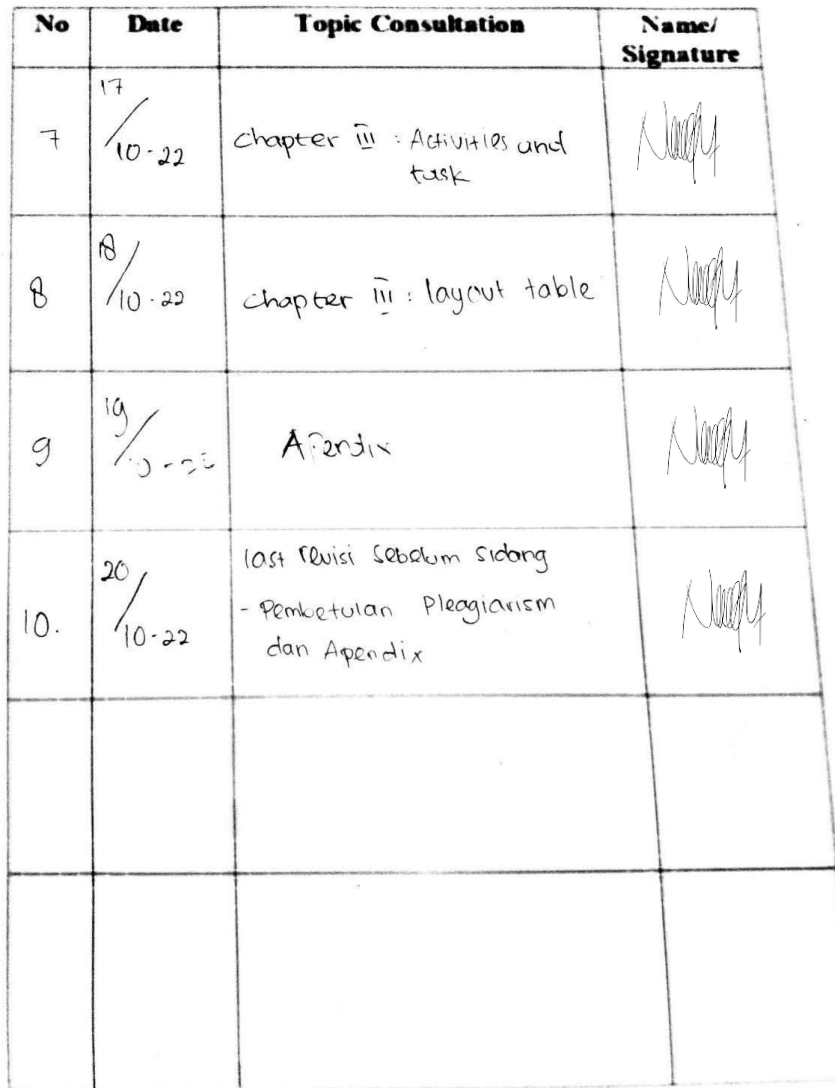 No Date Topic Consultation Name/
Signature
7 17/10-22 Chapter III : Activities and
task
8 18/10-22 Chapter III : layout table
9 19/
10. 20/10-22 last revisi sebelum sidang
- Pembetulan Pleagiarism
dan Apendix